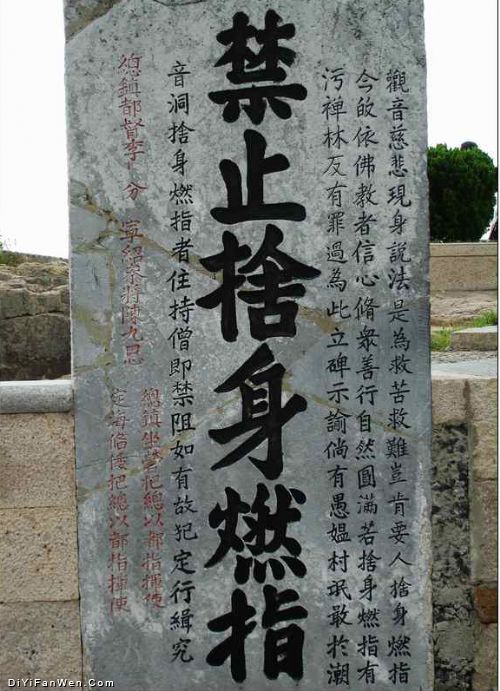 觀音慈悲現身說法是為救苦救難豈肯要人捨身燃指
今皈依佛教者信心脩衆善行自然圓滿若捨身燃指有
污禪林反有罪過為此立碑示諭倘有愚媼村氓敢於潮
禁止捨身燃指
音洞捨身燃指者住持僧即禁阻如有故犯定行緝究
總鎮都督李 分 寧紹參將陳九思
總鎮坐營把總以都指揮使
定海備倭把總以都指揮陳
DiYiFanWen.Com